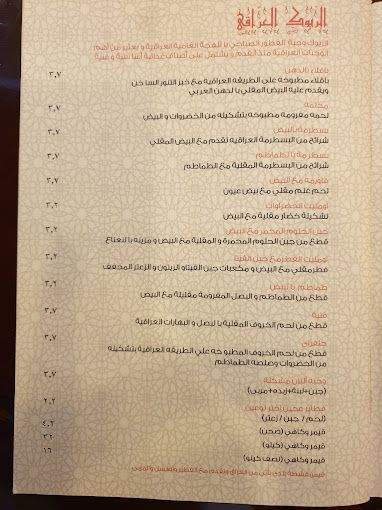 الريوك العراقي
الريوك وجبة الفطور الصباحي با للهجة العامية العراقية و يعتبر من أهم
الوجبات العراقية منذ القدم و يشتمل على أصناف غذائية أساسية وغنية
باقلاء بالدهن
٣,٧
باقلاء مطبوخه على الطريقه العراقيه مع خبز التنور الساخن
ويقدم عليه البيض المقلي با لدهن العربي
مخلمه
٣,٧
لحمه مفرومه مطبوخه بتشكيله من الخضروات و البيض
بسطرمة بالبيض
٣,٧
شرائح من البسطرمة العراقيه تقدم مع البيض المقلي
بسطرمة با لطماطم
٣,٧
شرائح من البسطرمة المقلية مع الطماطم
قاورمه مع البيض
٣,٧
لحم غنم مقلي مع بيض عيون
اومليت الخضراوات
٣,٢
تشكيلة خضار مقلية مع البيض
جبن الحلوم المحمر مع البيض
٣,٢
قطع من جبن الحلوم المحمرة و المقلية مع البيض و مزينه با لنعناع
اومليت الفطر مع جبن الفيتا
٣,٢
فطر مقلي مع البيض و مكعبات جبن الفيتا و الزيتون و الزعتر المجفف
طماطم با لبيض
٣,٢
قطع من الطماطم و البصل المفرومة مقليلة مع البيض
٣,٧
قطع من لحم الخروف المقلية با لبصل و البهارات العراقية
٣,٧
قطع من لحم الخروف المطبوخه على الطريقه العراقيه بتشكيله
من الخضروات وصلصه الطماطم
وجبه ألبان مشكلة
٣,٧
(جبن+لبنة+زبده+مربى)
فطاير عجين إختر نوعين
٢,٢
(لحم / جبن / زعتر)
قيمر وكاهي (صحن)
٤,٢
قيمر وكاهي (كيلو)
٣٢
قيمر وكاهي (نصف كيلو)
١٦